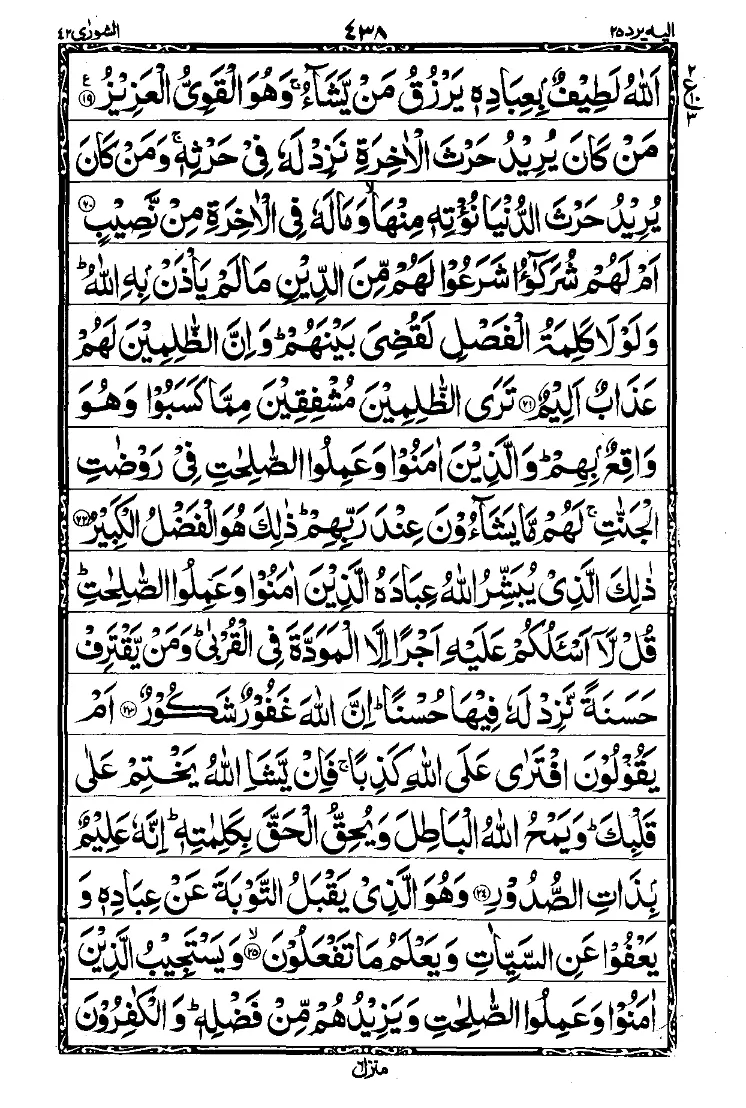 الیه یرد ۲۵
٤٣٨
الشورٰی ٤٢
اَللّٰهُ لَطِیْفٌۢ بِعِبَادِهٖ یَرْزُقُ مَنْ یَّشَآءُ ۚ وَهُوَ الْقَوِیُّ الْعَزِیْزُ ﴿۱۹﴾ ع
مَنْ كَانَ یُرِیْدُ حَرْثَ الْاٰخِرَةِ نَزِدْ لَهٗ فِیْ حَرْثِهٖ ۚ وَمَنْ كَانَ
یُرِیْدُ حَرْثَ الدُّنْیَا نُؤْتِهٖ مِنْهَا ۙ وَمَا لَهٗ فِی الْاٰخِرَةِ مِنْ نَّصِیْبٍ ﴿۲۰﴾
اَمْ لَهُمْ شُرَكٰٓؤُا شَرَعُوْا لَهُمْ مِّنَ الدِّیْنِ مَا لَمْ یَاْذَنْۢ بِهِ اللّٰهُ ؕ
وَلَوْلَا كَلِمَةُ الْفَصْلِ لَقُضِیَ بَیْنَهُمْ ؕ وَاِنَّ الظّٰلِمِیْنَ لَهُمْ
عَذَابٌ اَلِیْمٌ ﴿۲۱﴾ تَرَی الظّٰلِمِیْنَ مُشْفِقِیْنَ مِمَّا كَسَبُوْا وَهُوَ
وَاقِعٌۢ بِهِمْ ؕ وَالَّذِیْنَ اٰمَنُوْا وَعَمِلُوا الصّٰلِحٰتِ فِیْ رَوْضٰتِ
الْجَنّٰتِ ۚ لَهُمْ مَّا یَشَآءُوْنَ عِنْدَ رَبِّهِمْ ؕ ذٰلِكَ هُوَ الْفَضْلُ الْكَبِیْرُ ﴿۲۲﴾
ذٰلِكَ الَّذِیْ یُبَشِّرُ اللّٰهُ عِبَادَهُ الَّذِیْنَ اٰمَنُوْا وَعَمِلُوا الصّٰلِحٰتِ ؕ
قُلْ لَّاۤ اَسْـَٔلُكُمْ عَلَیْهِ اَجْرًا اِلَّا الْمَوَدَّةَ فِی الْقُرْبٰی ؕ وَمَنْ یَّقْتَرِفْ
حَسَنَةً نَّزِدْ لَهٗ فِیْهَا حُسْنًا ؕ اِنَّ اللّٰهَ غَفُوْرٌ شَكُوْرٌ ﴿۲۳﴾ اَمْ
یَقُوْلُوْنَ افْتَرٰی عَلَی اللّٰهِ كَذِبًا ۚ فَاِنْ یَّشَاِ اللّٰهُ یَخْتِمْ عَلٰی
قَلْبِكَ ؕ وَیَمْحُ اللّٰهُ الْبَاطِلَ وَیُحِقُّ الْحَقَّ بِكَلِمٰتِهٖ ؕ اِنَّهٗ عَلِیْمٌۢ
بِذَاتِ الصُّدُوْرِ ﴿۲٤﴾ وَهُوَ الَّذِیْ یَقْبَلُ التَّوْبَةَ عَنْ عِبَادِهٖ وَ
یَعْفُوْا عَنِ السَّیِّاٰتِ وَیَعْلَمُ مَا تَفْعَلُوْنَ ﴿۲۵﴾ ۙ وَیَسْتَجِیْبُ الَّذِیْنَ
اٰمَنُوْا وَعَمِلُوا الصّٰلِحٰتِ وَیَزِیْدُهُمْ مِّنْ فَضْلِهٖ ؕ وَالْكٰفِرُوْنَ
منزل ٦